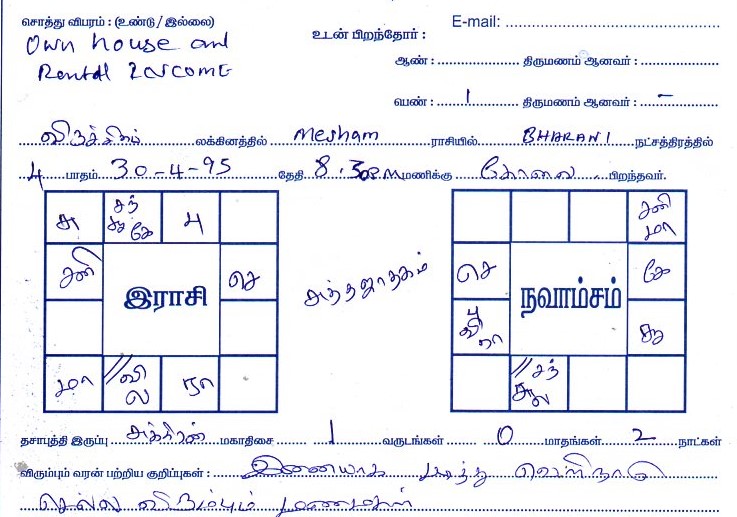 சொத்து விபரம் : (உண்டு / இல்லை)
E-mail:
Own house and
உடன் பிறந்தோர் :
Rental Income
ஆண் : திருமணம் ஆனவர் :
பெண் : 1 திருமணம் ஆனவர் : –
விருச்சிகம் லக்கினத்தில் Mesham ராசியில் BHARANI நட்சத்திரத்தில்
4 பாதம் 30-4-95 தேதி 8.30 PM மணிக்கு கோவை பிறந்தவர்.
சு சந் சு கே பு
சனி
மா
சனி செ
செ கே
இராசி
சுத்தஜாதகம்
நவாம்சம்
பு
சு
மா // வி ல ரா
// சந்
தசாபுத்தி இருப்பு சுக்கிரன் மகாதிசை 1 வருடங்கள் 0 மாதங்கள் 2 நாட்கள்
விரும்பும் வரன் பற்றிய குறிப்புகள் : இணையாக படித்து வெளிநாடு
செல்ல விரும்பும் மணமகன்